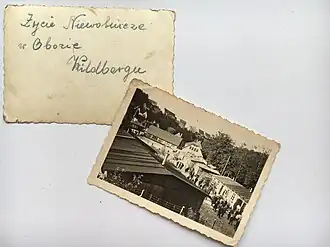 Życie Niewolnicze
w Obozie
Wildbergu